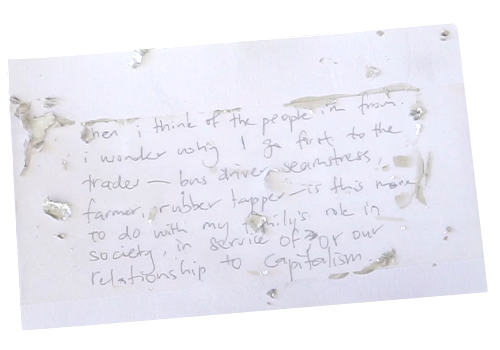 when i think of the people i'm from.
i wonder why I go first to the
trades — bus driver, seamstress,
farmer, rubber tapper — is this more
to do with my family's role in
society, in service of? or our
relationship to capitalism.